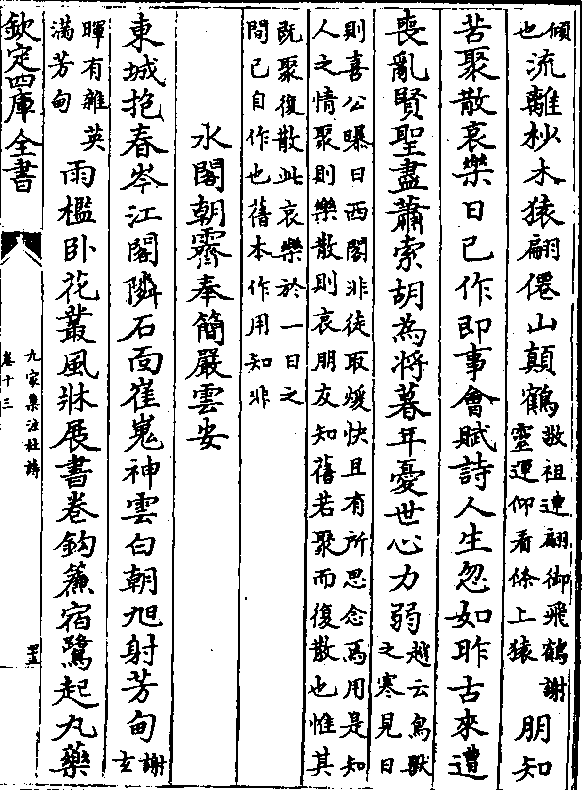 傾
也流離杪木猿翩僊山顛鶴敬祖連翩御飛鶴謝
靈運仰看條上猿朋知
苦聚散哀樂日已作即事會賦詩人生忽如昨古來遭
喪亂賢聖盡蕭索胡為將暮年憂世心力弱越云鳥獸
之寒見日
則喜公曝日西閣非徒取煖快且有所思念焉用是知
人之情聚則樂散則哀朋友知舊若聚而復散也惟其
既聚復散此哀樂於一日之
間已自作也舊本作用知非
水閣朝霽奉簡嚴雲安
東城抱春岑江閣隣石面崔嵬神雲白朝旭射芳甸謝
玄
暉有雜英
滿芳甸雨檻卧花叢風牀展書卷鈎簾宿鷺起丸藥
欽定四庫全書
九家集注杜詩
卷十三